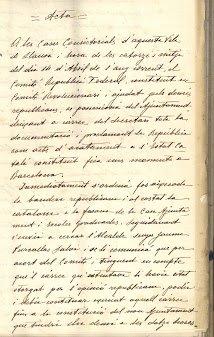 = Acta =
A les Cases Consistorials d'aquesta Vila
de Llansà, hora de les catorze, i mitja
del dia 14 d'Abril de l'any corrent, el
Comitè Republicà Federal, constituit en
Comité Revolucionari i ajudat pels demés
republicans, es possessionà del Ajuntament,
dirigint a càrrec del Secretari tota la
documentació i proclamant la República
com acte d'acatament a l'Estat Ca-
talà constituit fins uns moments a
Barcelona.
Immediatament s'ordenà fos aixecada
la bandera republicana i al costat la
catalana a la façana de la Casa Ajunta-
ment i escoles graduades, seguidament
s'envià a cercar l'Alcalde senyor Jaume
Purcallas Salvi se li comunicà que per
acort del Comitè, tinguent en compte
que el càrrec que ostentava li havia estat
otorgat per l'opinió republicana, podia
i debia continuar exercint aquell càrrec
fins a la constitució del nou Ajuntament
que tindria lloc demà a les dotze hores